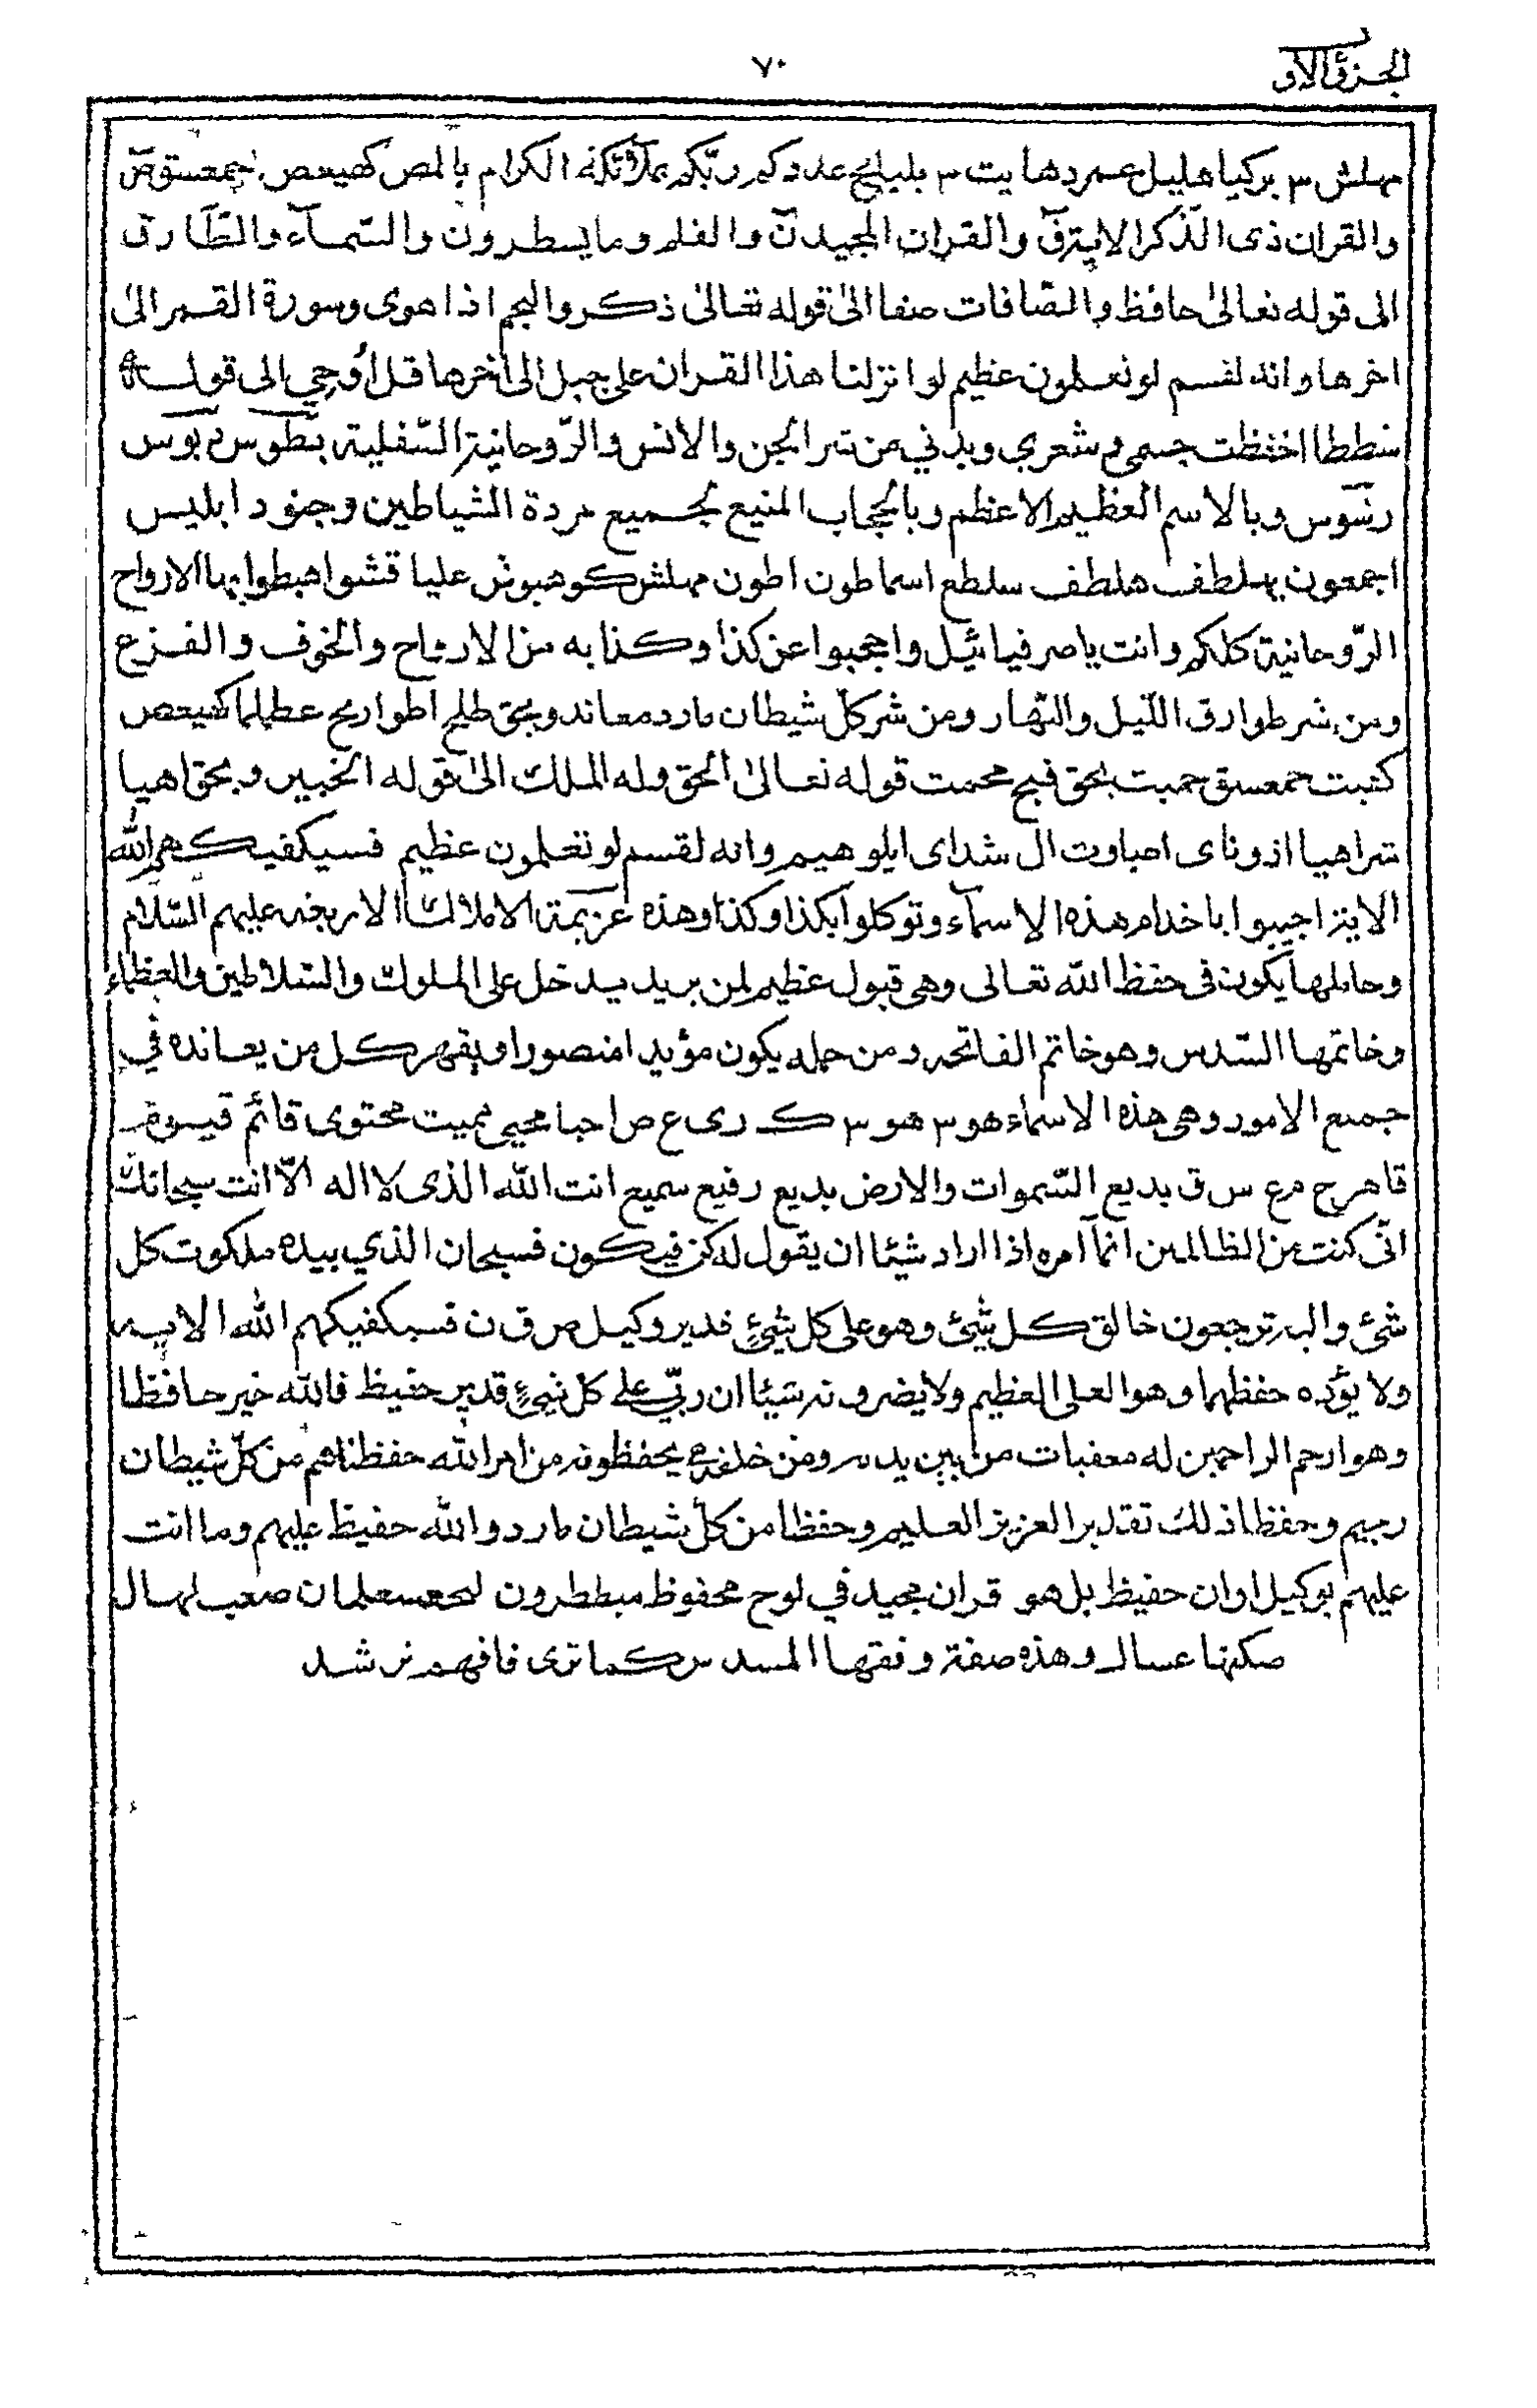 الجزؤالاول
٧٠
مهلش ٣ بركيا هليل عمردهايت ٣ بليليخ عددكم ربكم بملائكته الكرام بالمص كهيعص حمعسق ص
والقران ذى الذكرالايةق والقران المجيدن والقلم ومايسطرون والسمآء والطارق
الى قوله تعالىٰ حافظ والصافات صفا الىٰ قوله تعالىٰ ذكر والنجم اذا هوى وسورة القمر الىٰ
اخرها وانه لقسم لوتعلمون عظيم لوانزلنا هذا القران على جبل الى اخرها قل أوحي الى قوله
شططا احتفظت جسمى وشعري وبدني من شر الجن والانس والروحانية السفلية بطوس بوس
رسوس وبالاسم العظيم الاعظم وبالحجاب المنيع لجميع مردة الشياطين وجنود ابليس
اجمعون بهلطف هلطف سلطع اسماطون اطون مهلش كوهبوش عليا قشوا هبطوا يها الارواح
الروحانية كلكم وانت ياصرفيائيل واحجبوا عن كذا وكذا به من الارياح والخوف والفزع
ومن شر طوارق الليل والنهار ومن شر كل شيطان مارد معاند وبحق طليح اطواريح عطيلما كهيعص
كفيت حمعسق حميت بحق فبج محمت قوله تعالىٰ الحق وله الملك الىٰ قوله الخبير وبحق اهيا
شراهيا اذوناى اصباوت ال شداى ايلوهيم وانه لقسم لو تعلمون عظيم فسيكفيكهم الله
الاية اجيبوا ياخدام هذه الاسمآء وتوكلوا بكذا وكذا وهذه عزيمة الاملاك الاربعه عليهم السلام
وحاملها يكون فى حفظ الله تعالى وهى قبول عظيم لمن يريد يدخل على الملوك والسلاطين والعظماء
وخاتمها السدس وهو خاتم الفاتحه ومن حمله يكون مؤيدا منصورا ويقهر كل من يعانده في
جميع الامور وهى هذه الاسماء هو ٣ هو ٣ ك رى ع ص احبا محيى مميت محتوى قائم قيوم
قاهر ح م ع س ق بديع السموات والارض بديع رفيع سميع انت الله الذى لا اله الا انت سبحانك
انى كنت من الظالمين انما امره اذا اراد شيئا ان يقول له كن فيكون فسبحان الذي بيده ملكوت كل
شئ واليه ترجعون خالق كل شئ وهو على كل شئ قدير وكيل ص ق ن فسيكفيكهم الله الايه
ولا يؤده حفظهما وهو العلى العظيم ولا يضرونه شيئا ان ربي على كل شئ قدير حفيظ فالله خير حافظا
وهو ارحم الراحمين له معقبات من بين يديه ومن خلفه يحفظونه من امر الله حفظناهم من كل شيطان
رجيم وحفظا ذلك تقدير العزيز العليم وحفظا من كل شيطان مارد والله حفيظ عليهم وما انت
عليهم بوكيل اوان حفيظ بل هو قران مجيد في لوح محفوظ مبططرون لحعسعلمان صعب لهال
صكهنا عسال وهذه صفة وفقها المسدس كما ترى فافهم ترشد